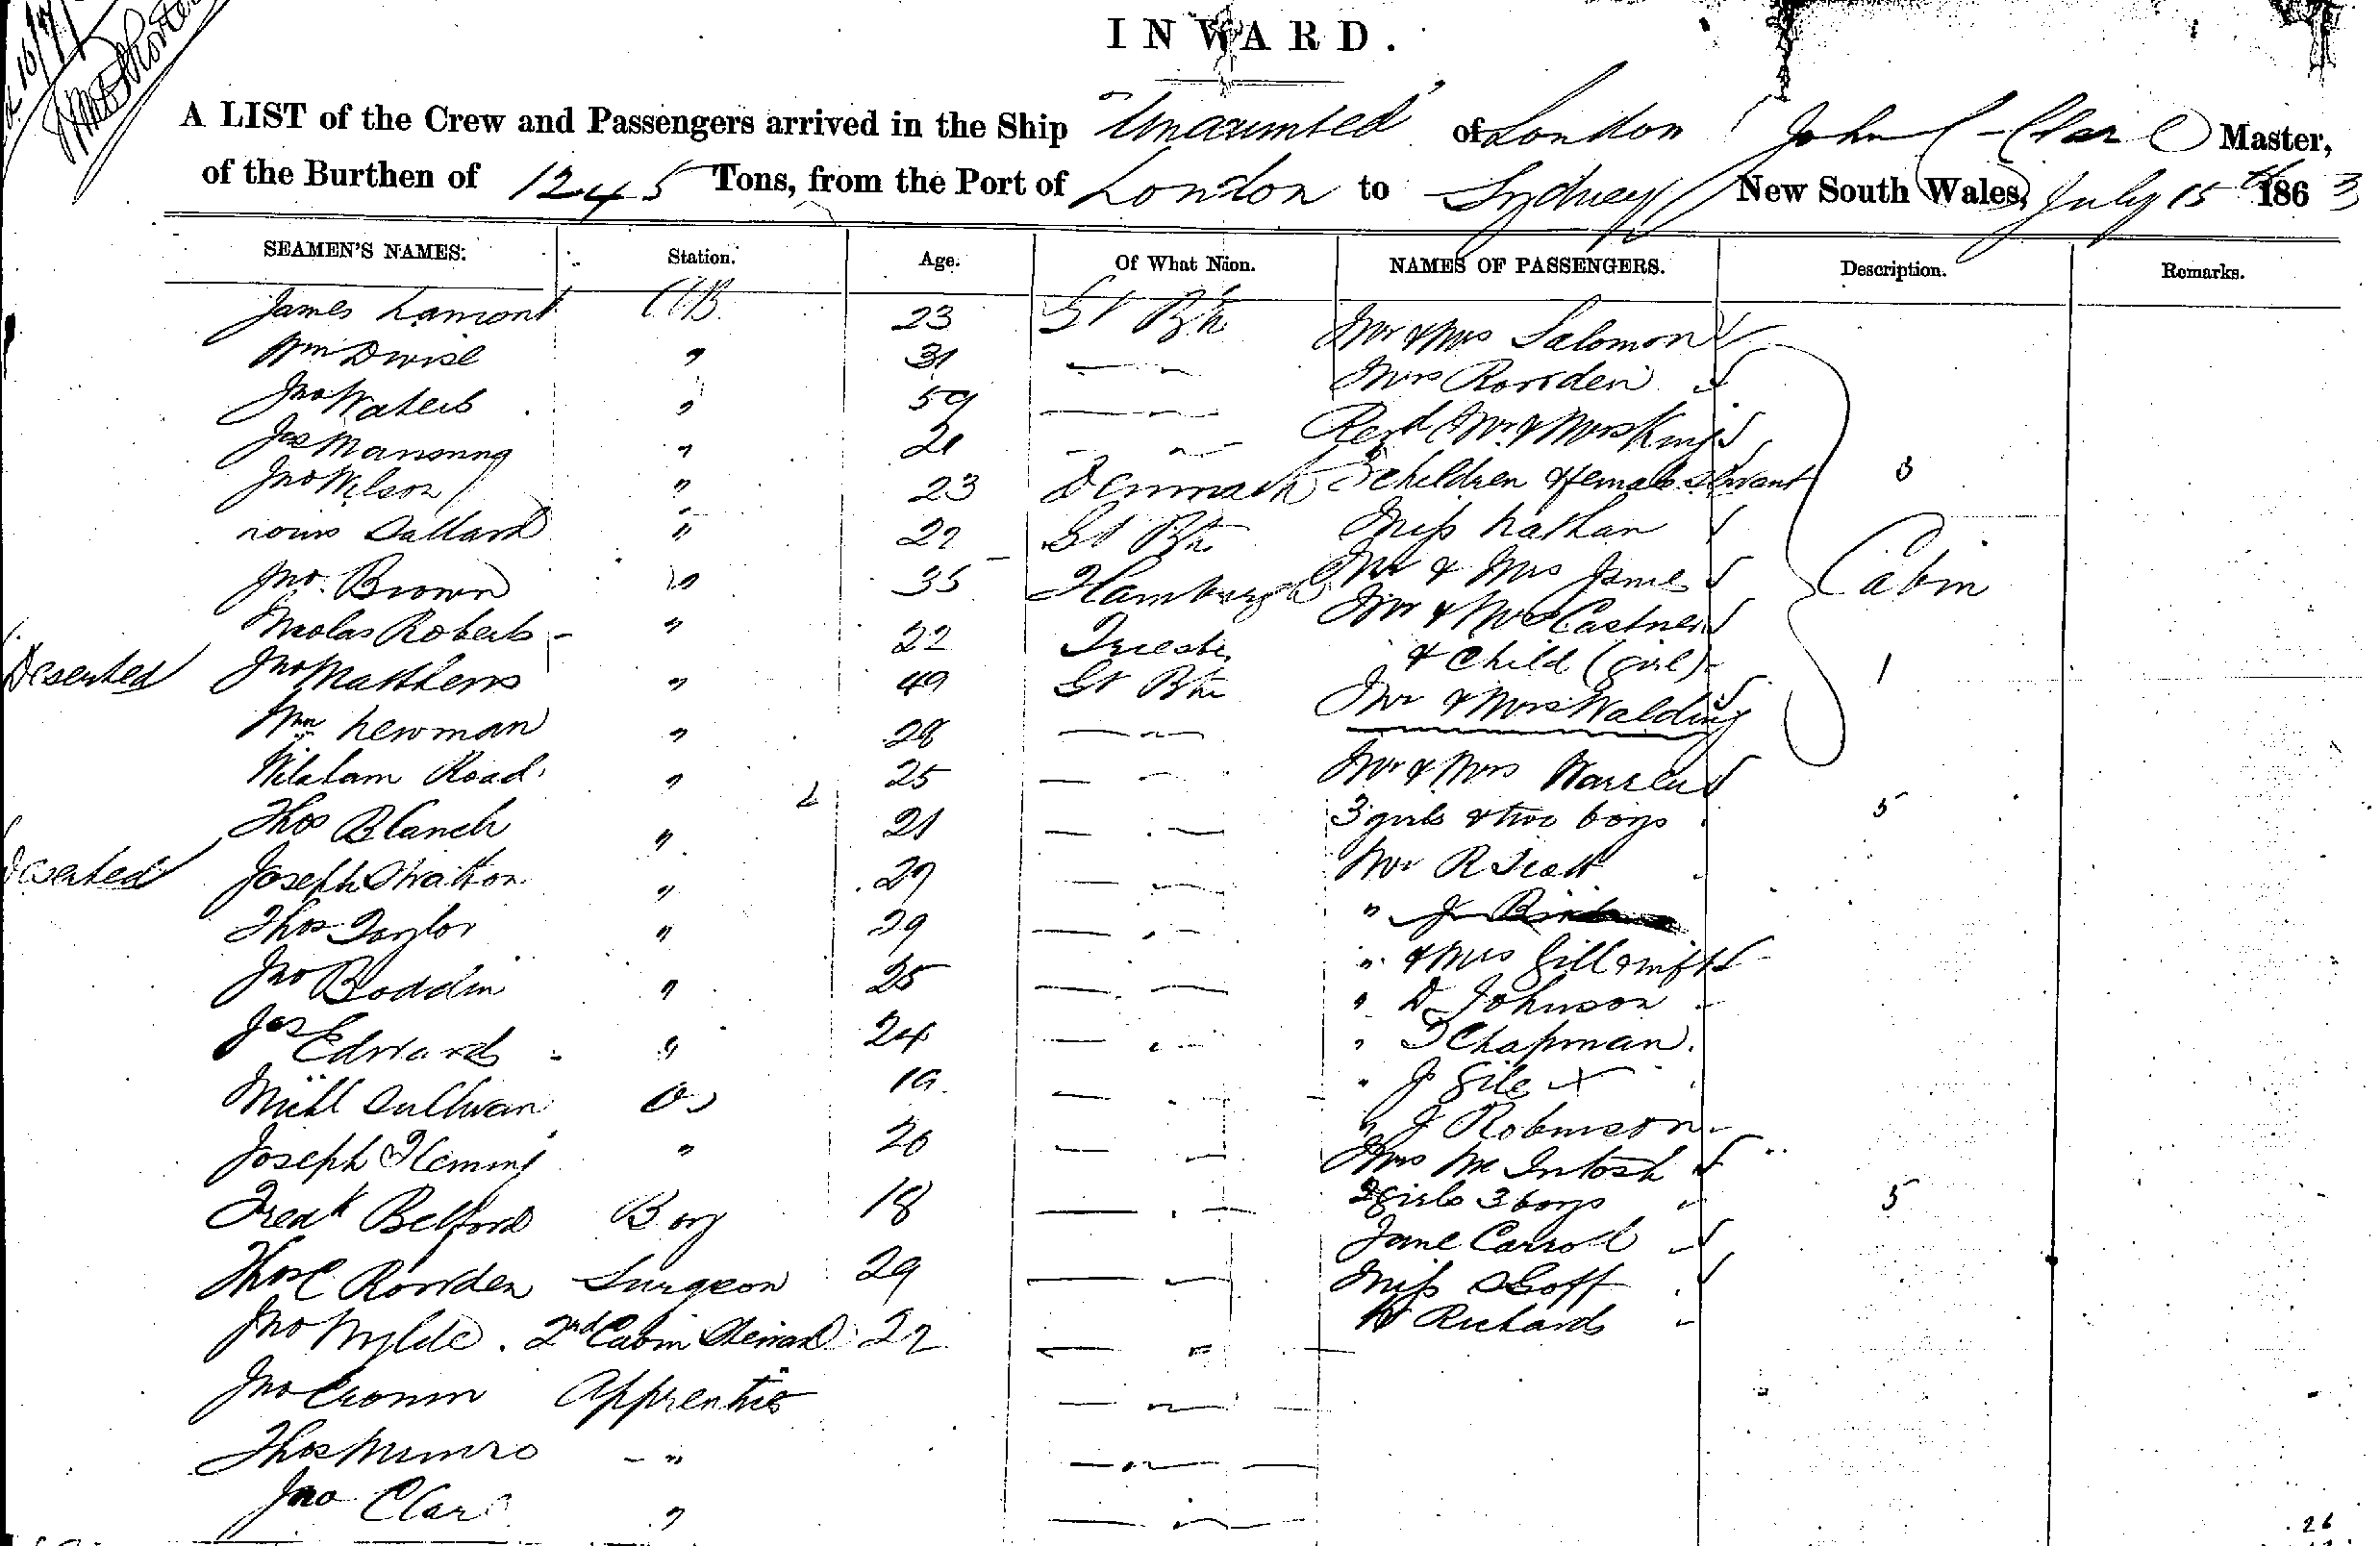 INWARD.
A LIST of the Crew and Passengers arrived in the Ship "Unaccounted" of London John Clare Master,
of the Burthen of 1245 Tons, from the Port of London to Sydney New South Wales, July 15th 1863
SEAMEN'S NAMES. Station. Age. Of What Nion. NAMES OF PASSENGERS. Description. Remarks.
James Lamont AB 23 Gt Bn Mr & Mrs Salomon
Wm " 31 — " Mrs Rowden
Jno Waters " 59 — " — Revd Mr & Mrs King
Jas Manning " 21 - " - children & female servant 3
Jno Wilson " 23 Denmark
" 22 Gt Bn Miss Nathan
Jno. Brown " 35 Hamburg Mr & Mrs James Cabin
Nicolas Roberts " 22 Trieste Mr & Mrs Castner
& Child (girl) 1
Deserted Jno Matthews " 49 Gt Bn Mr & Mrs Walding
Wm Newman " 28 — " —
William Road " 25 — " Mr & Mrs Warren
Thos Blanch " 21 — " — 3 girls & two boys 5
Deserted Joseph Stratton " 29 — " — Mr R Scott
Thos Taylor " 29 — " — " J
Jno Boddin " 25 — " — " & Mrs Gill & inft
Jas Edwards " 24 — " — " D Johnson
" T Chapman
Michl Sullivan OS 19 — " — " J Gile X
Joseph Fleming " 20 — " — " J Robinson
Mrs McIntosh
Fredk Belford Boy 18 — " — 2 girls 3 boys 5
Jane Carrol
Thos C Rowden Surgeon 29 — " — Miss Goff
Jno Wylde. 2nd Cabin Steward 22 — " — Richards
Jno Cronin Apprentice — " —
Thos Munro - " — " —
Jno Clare " — " —
26